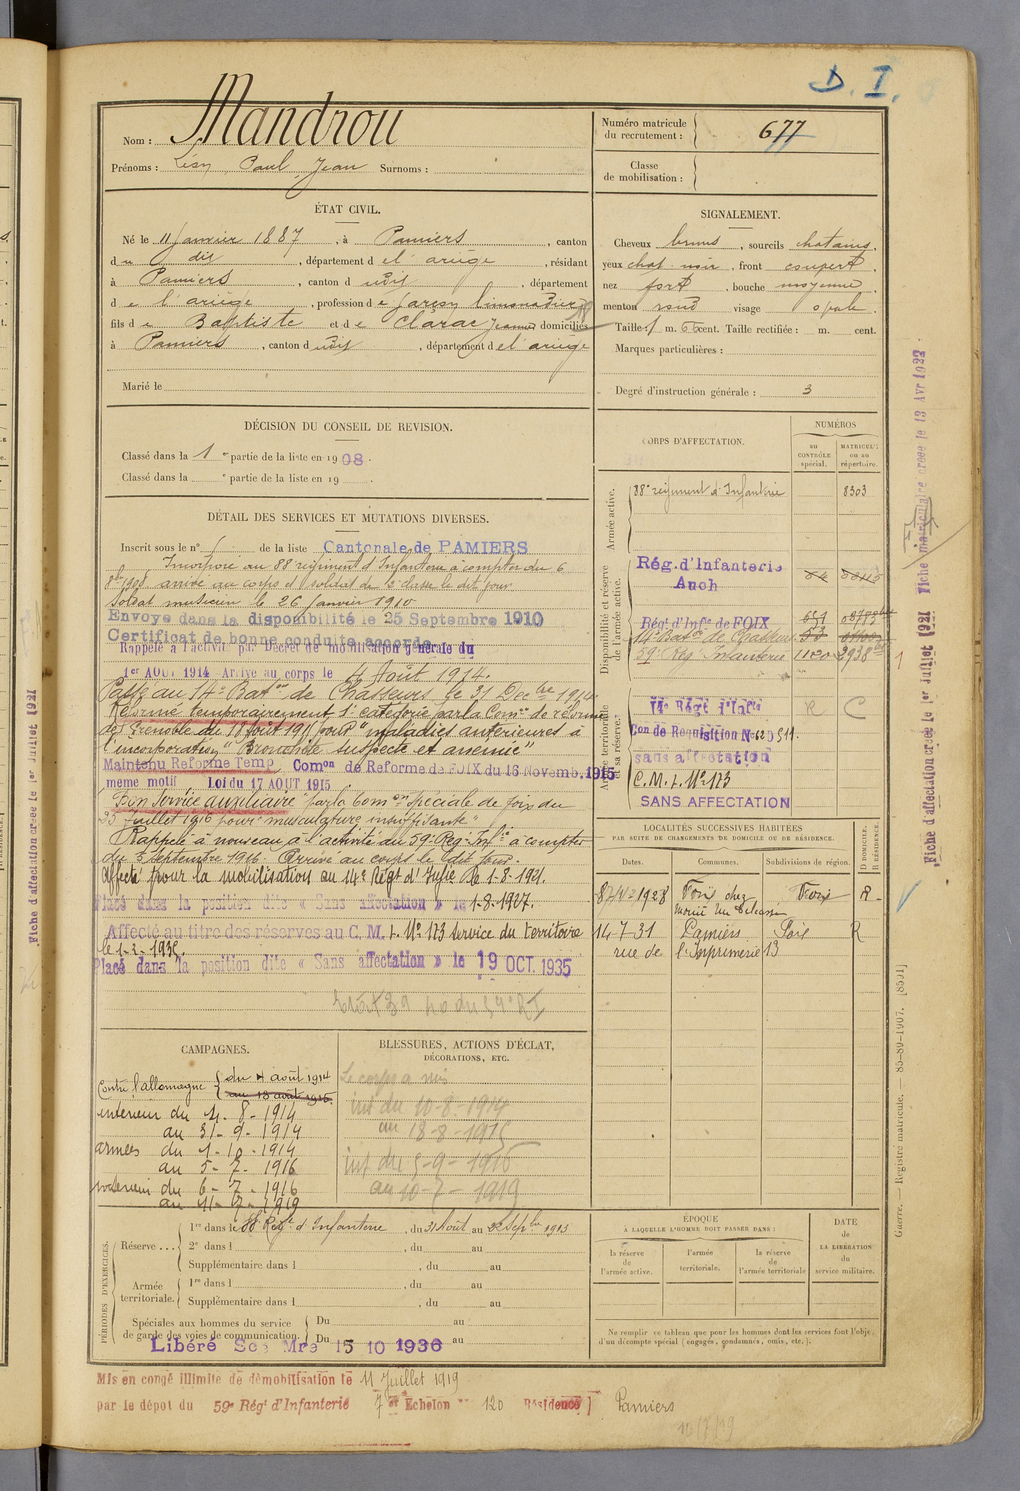 D. I.
Nom : Mandrou
Prénoms : Léon Paul Jean Surnoms :
Numéro matricule du recrutement : 677
Classe de mobilisation :
ÉTAT CIVIL.
Né le 11 Janvier 1887, à Pamiers, canton
du dit, département de l'ariège, résidant
à Pamiers, canton dudit, département
de l'ariège, profession de garçon limonadier
fils de Baptiste et de Clarac Jeanne domiciliés
à Pamiers, canton dudit, département de l'ariège
Marié le
SIGNALEMENT.
Cheveux bruns, sourcils chatains,
yeux chat. noir, front couvert,
nez fort, bouche moyenne,
menton rond visage ovale.
Taille : 1 m. 66 cent. Taille rectifiée : m. cent.
Marques particulières :
Degré d'instruction générale : 3
DÉCISION DU CONSEIL DE REVISION.
Classé dans la 1re partie de la liste en 1908.
Classé dans la partie de la liste en 19 .
DÉTAIL DES SERVICES ET MUTATIONS DIVERSES.
Inscrit sous le n° de la liste Cantonale de PAMIERS
Incorporé au 88e régiment d'Infanterie à compter du 6
8bre 1908. arrivé au corps et soldat de 2e classe le dit jour
Soldat musicien le 26 Janvier 1910
Envoyé dans la disponibilité le 25 Septembre 1910
Certificat de bonne conduite accordé
Rappelé à l'activité par Décret de mobilisation générale du
1er AOUT 1914 Arrivé au corps le 4 Août 1914.
Passé au 14e Baton de Chasseurs le 31 Decbre 1914
Réformé temporairement 1e catégorie par la Comon de réforme
de Grenoble du 18 août 1915 pour "maladies antérieures à
l'incorporation" "Bronchite suspecte et anémie"
Maintenu Réformé Temp. Comon de Reforme de FOIX du 16 Novemb. 1915
même motif Loi du 17 AOUT 1915
Bon service auxiliaire par la Comon spéciale de foix du
25 Juillet 1916 pour "musculature insuffisante"
Rappelé à nouveau à l'activité au 59e Reg. Infie à compter
du 5 Septembre 1916. Arrivé au corps le dit jour.
Affecté pour la mobilisation au 14e Régt d'Infie le 1-8-1921.
Placé dans la position dite « Sans affectation » le 1-8-1927.
Affecté au titre des réserves au C. M. t. No 173 Service du territoire
le 1-2-1935.
Placé dans la position dite « Sans affectation » le 19 OCT. 1935
CORPS D'AFFECTATION.
NUMÉROS
au CONTRÔLE spécial.
MATRICULE ou au répertoire.
Armée active.
88e régiment d'Infanterie 8303
Disponibilité et réserve de l'armée active.
Rég. d'Infanterie
Auch
Régt d'Infie de FOIX 651
14e Baton de Chasseurs
59e Rég Infanterie 1120 2938
Armée territoriale et sa réserve.
14e Régt d'Infie
Con de Requisition No
sans affectation
C. M. t. No 173
SANS AFFECTATION
LOCALITÉS SUCCESSIVES HABITÉES
PAR SUITE DE CHANGEMENTS DE DOMICILE OU DE RÉSIDENCE.
Dates. Communes. Subdivisions de région. D DOMICILE. R RÉSIDENCE.
1928 Foix chez Foix R
14-7-31 Pamiers Foix R
rue de l'Imprimerie 13
CAMPAGNES.
Contre l'allemagne du 4 août 1914
au 18 août 1915.
intérieur du 4-8-1914
au 31-9-1914
armées du 1-10-1914
au 5-7-1916
intérieur du 6-7-1916
au 11-7-1919
BLESSURES, ACTIONS D'ÉCLAT,
DÉCORATIONS, ETC.
Le corps a mis
int du 10-8-1914
au 18-8-1915
int du 5-9-1916
au 10-7-1919
PÉRIODES D'EXERCICES.
Réserve . . . 1re dans le 88e Régt d'Infanterie, du 31 Août au 22 Sepbre 1913
2e dans l , du au
Supplémentaire dans l , du au
Armée territoriale. 1re dans l , du au
Supplémentaire dans l , du au
Spéciales aux hommes du service de garde des voies de communication. Du au
Du au
Libéré Sce Mre 15 10 1936
ÉPOQUE
À LAQUELLE L'HOMME DOIT PASSER DANS :
la réserve de l'armée active.
l'armée territoriale.
la réserve de l'armée territoriale
DATE de LA LIBÉRATION du service militaire.
Ne remplir ce tableau que pour les hommes dont les services font l'objet
d'un décompte spécial (engagés, condamnés, omis, etc.).
Mis en congé illimité de démobilisation le 11 Juillet 1919
par le dépôt du 59e Régt d'Infanterie 7e Echelon no 120 Résidence Pamiers
10/7/19
Fiche matriculaire créée le 13 Avr 1922
Fiche d'affectation créée le 1er Juillet 1921
Guerre. — Registre matricule. — 85-89-1907. [8501]
Fiche d'affectation créée le 1er Juillet 1921